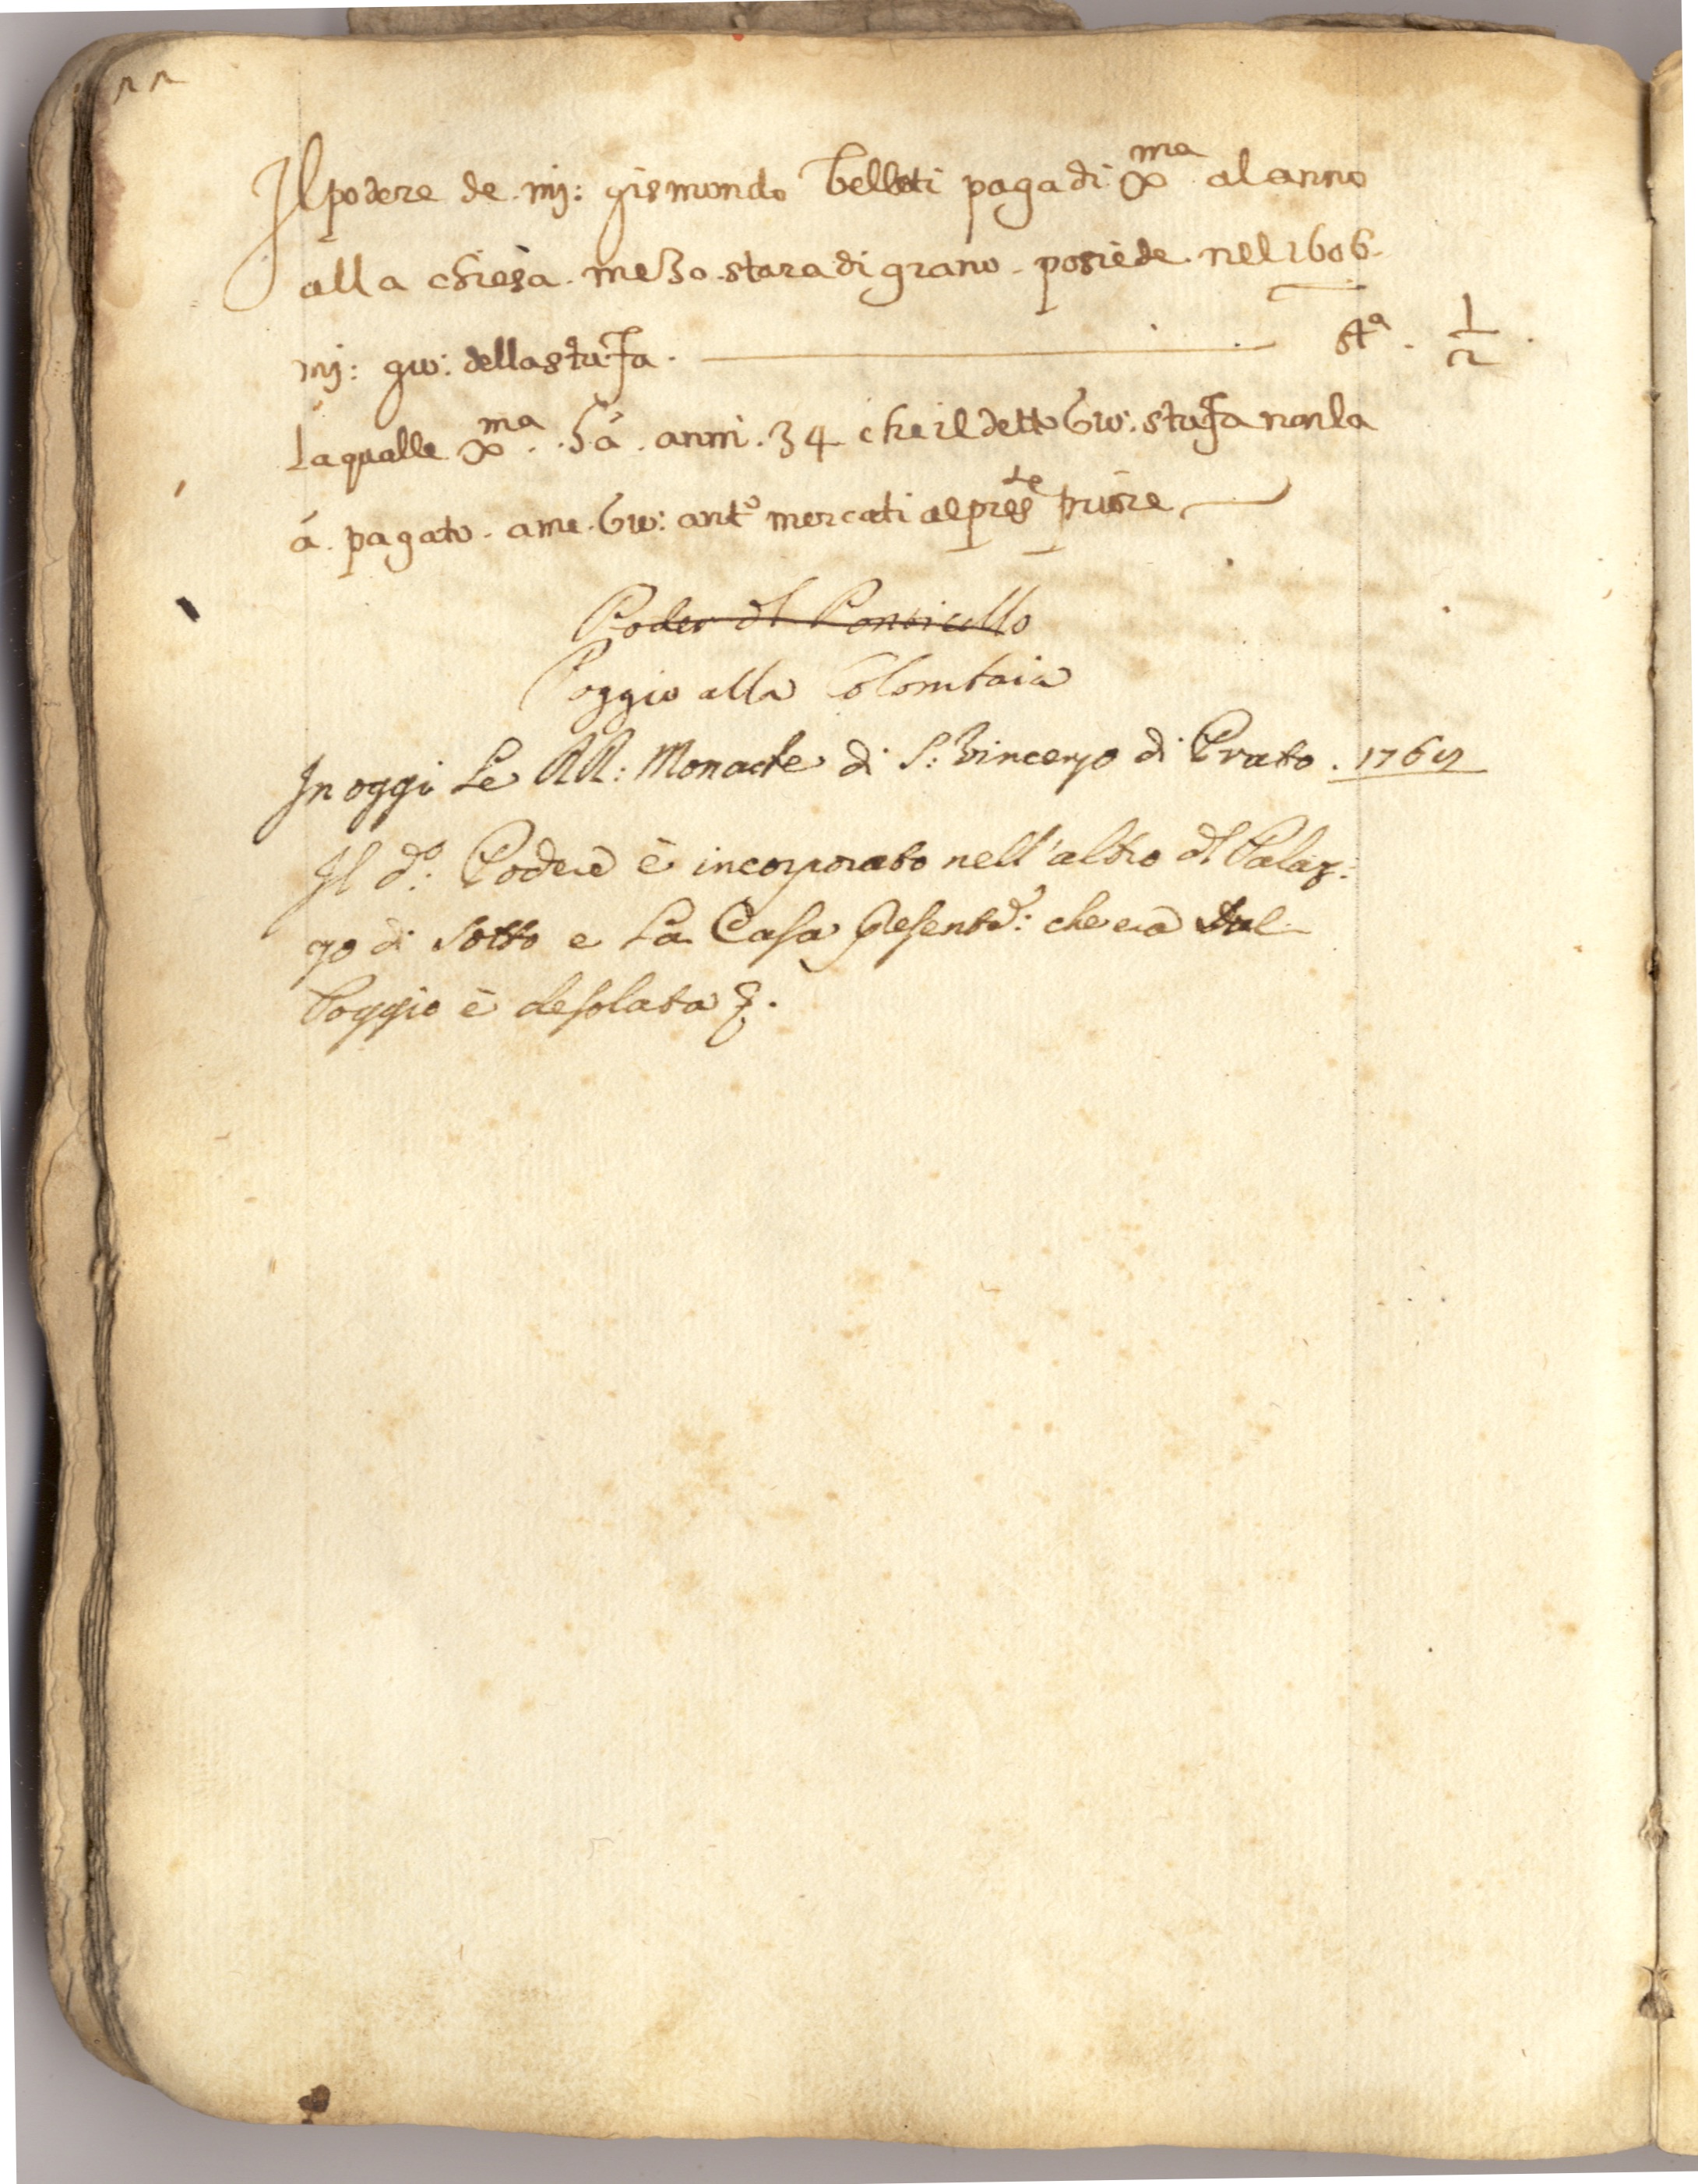 22
Il podere de mj: gismondo belloti paga di Xma al anno
alla chiesa. mezo stara di grano. posiede. nel 1606.
mj: gio: della stufa. st.ª. 1/2.
la qualle Xma. sá. anni. 34 che il detto Gio: stufa non la
á. pagato. a me. Gio: antº mercati al preste priore
Poder dl Ponticello
Poggio alla Colombaia
In oggi Le RR: Monache di S: Vincenzo di Prato. 1767
Il dº: Podere è incorporato nell'altro dl Palaz:
zo di sotto e La Casa che era Sul
Poggio è desolata